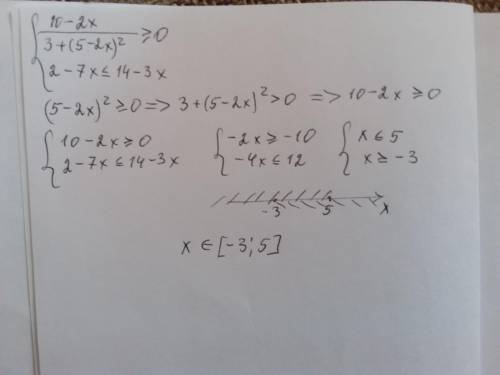 { (10-2x)/(3+(5-2x)²) ≥ 0
2-7x ≤ 14-3x
(5-2x)² ≥ 0 => 3+(5-2x)² > 0 => 10-2x ≥ 0
{ 10-2x ≥ 0 { -2x ≥ -10 { x ≤ 5
2-7x ≤ 14-3x -4x ≤ 12 x ≥ -3
-3 5 x
x ∈ [-3; 5]